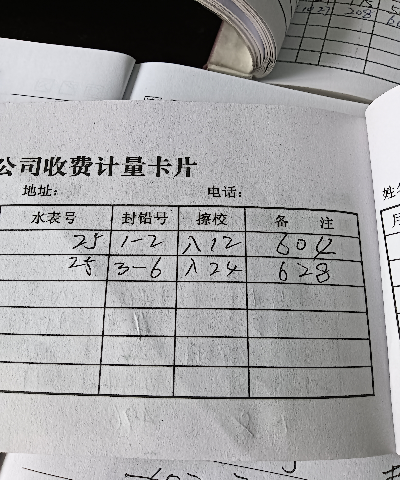 公司收费计量卡片
地址: 电话:
水表号 封铅号 擦校 备 注
25 1-2 入12 604
25 3-6 入24 628